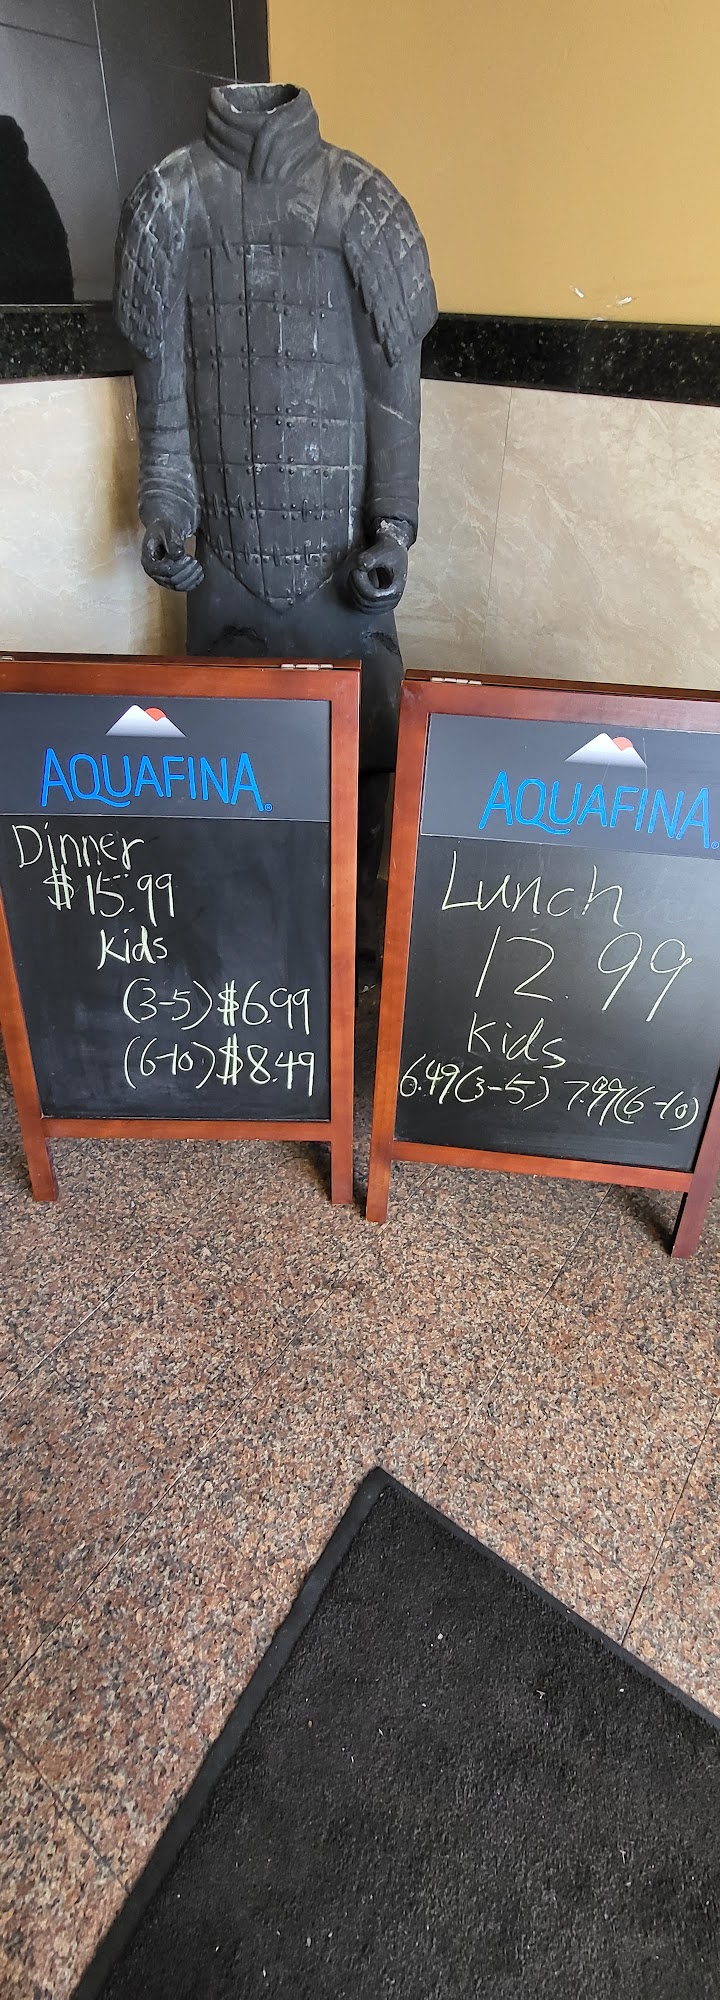 AQUAFINA®
Dinner
$15.99
Kids
(3-5) $6.99
(6-10) $8.49
AQUAFINA®
Lunch
12.99
Kids
6.49(3-5) 7.99(6-10)